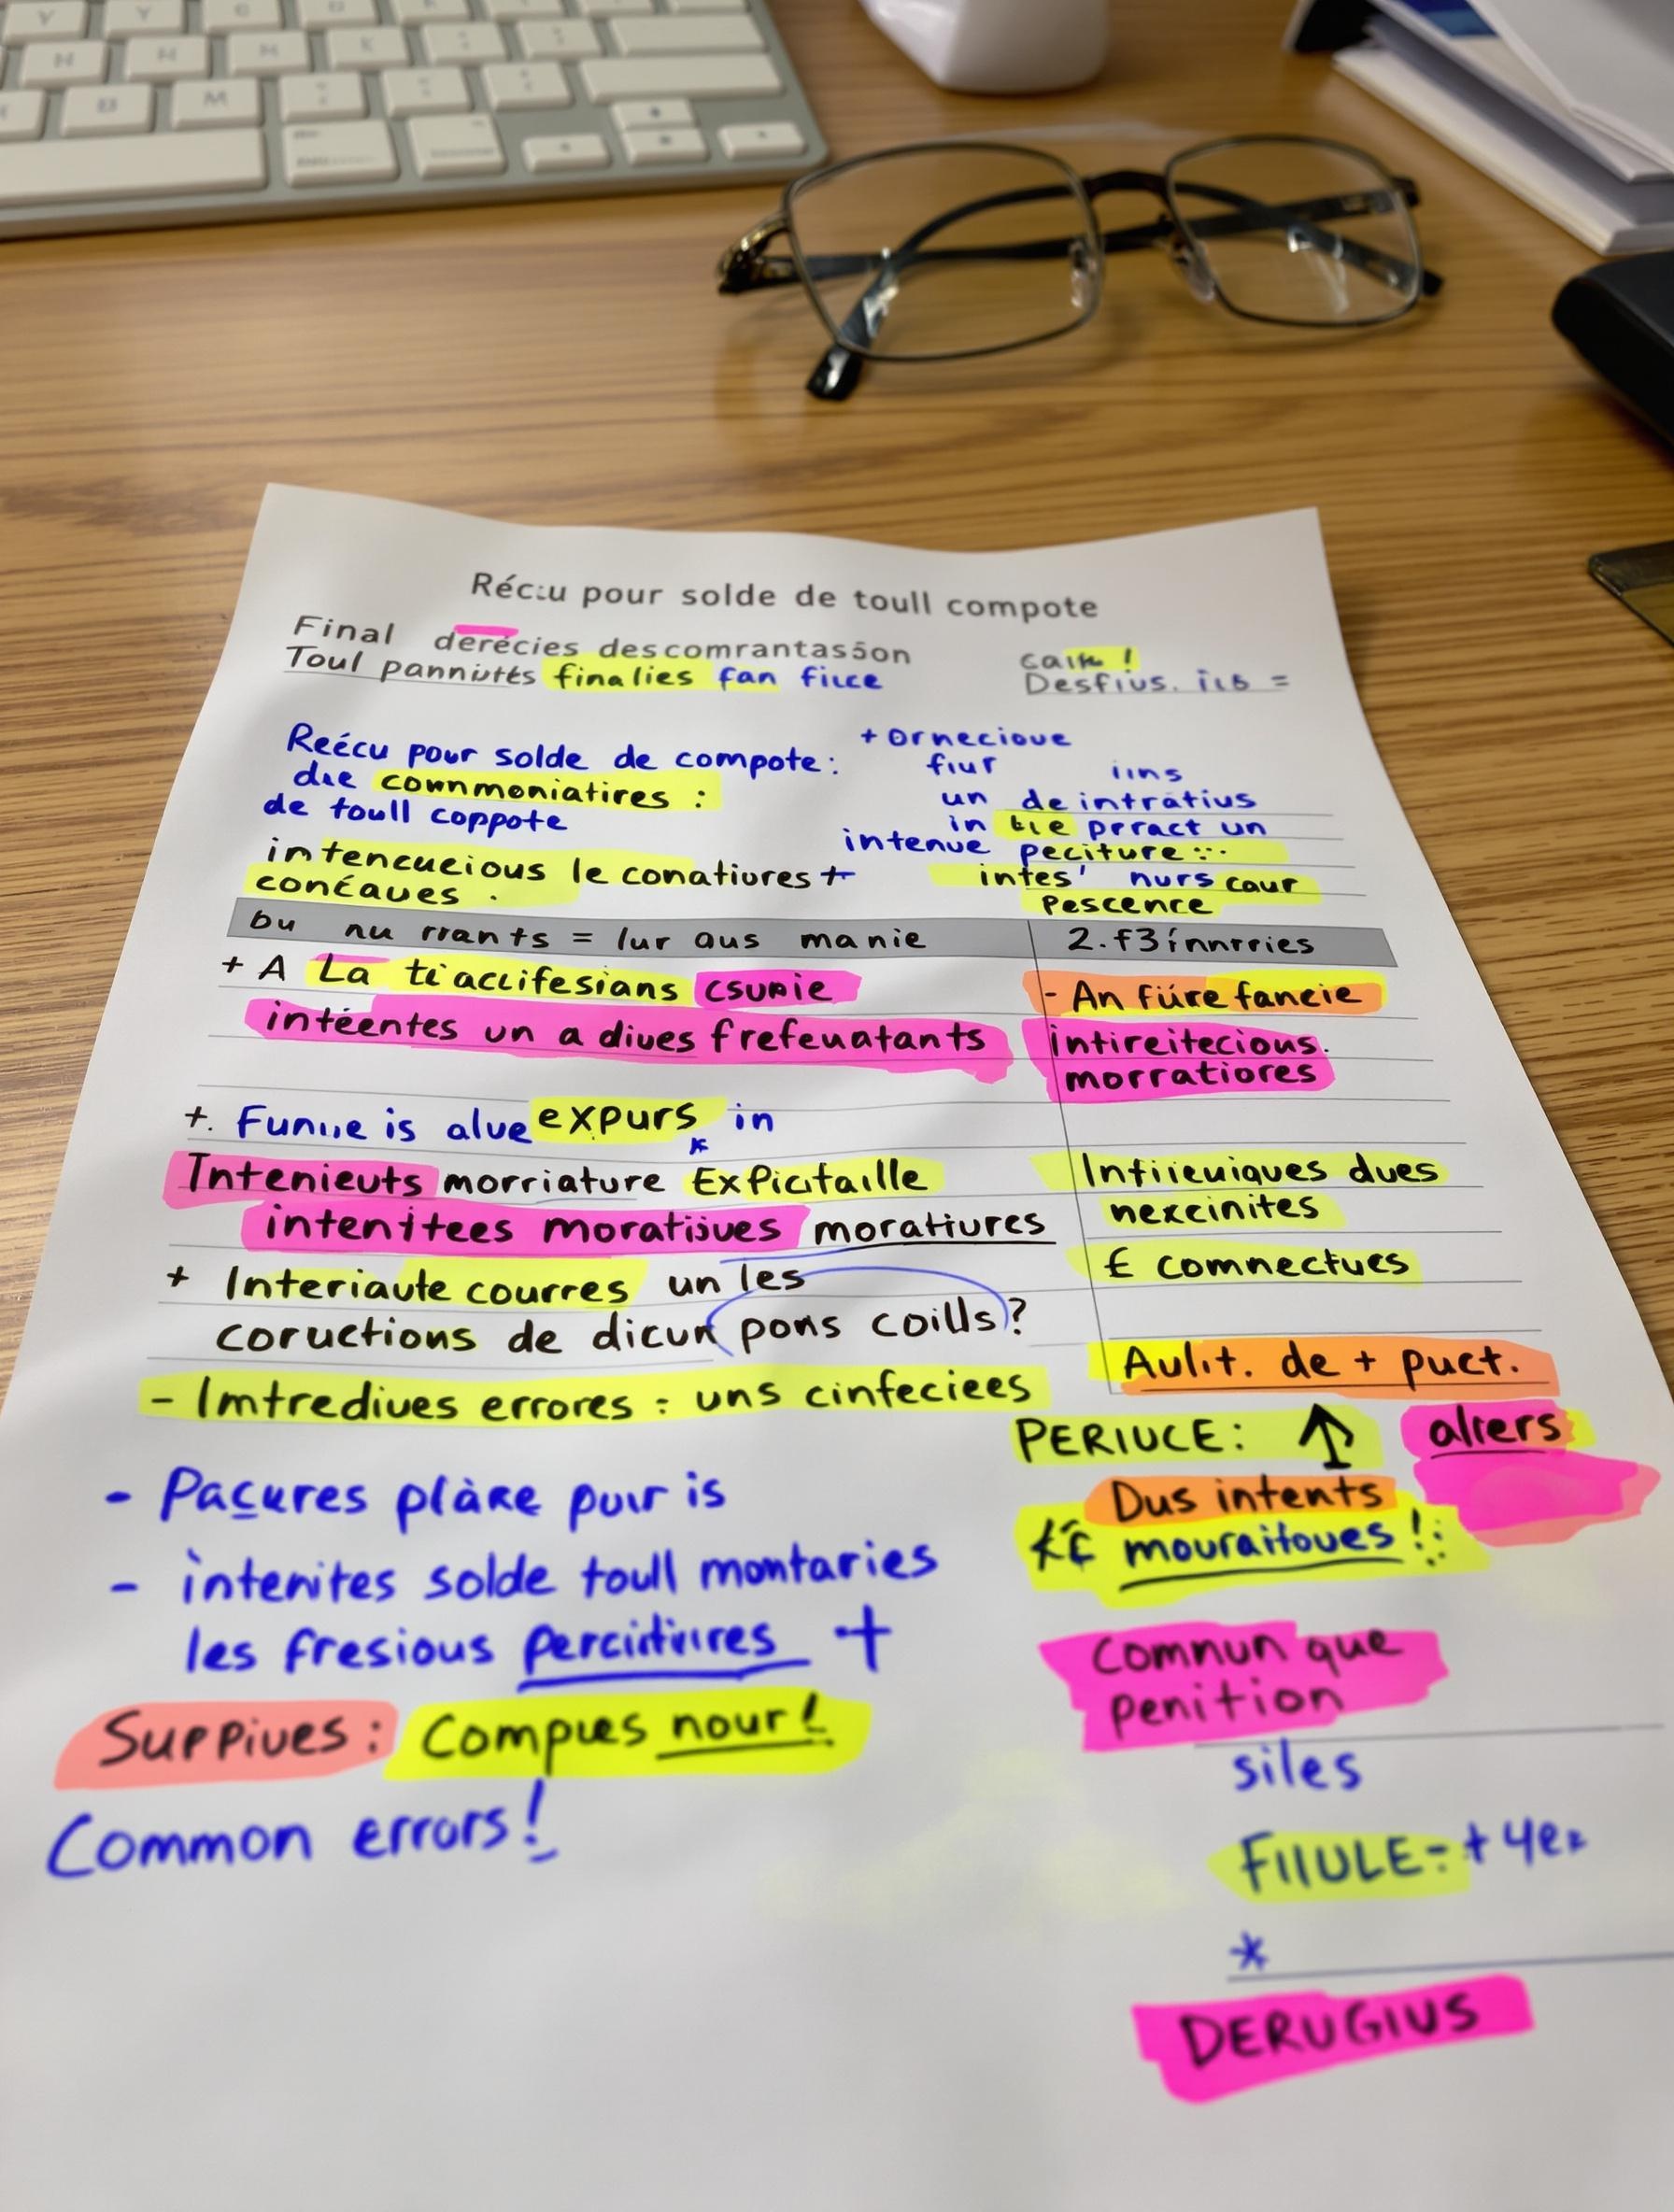 Réc:u pour solde de toull compote
Final derécies descomrantasson
Toul panniutés finalies fan fiice
Desfius. iis =
Reécu pour solde de compote:
die cownmoniatires :
de toull coppote
intencueious le conatiures +
concaues .
+ ornecioue
fiur iins
un de intratius
in bie prract un
intenue peciture :-.
intes' nurs caur
Pescence
bu nu rrants = lur aus manie
2.f3innrries
+ A La tiaccifesians csupie
intéentes un a dives frefeuatants
- An fúre fancie
intireitecious.
morratiores
+. Funue is alve expurs in
Intenieuts morriature Expictaille
intenitees moratioues moratiures
+ Interiaute courres un les
coructions de dicun pons coills?
- Imtredives errores : uns cinfeciees
Infiieuiques dues
nexcinites
£ comnectues
Aulit. de + puct.
PERIUCE: ↑ aliers
Dus intents
mouraitoues !:
- Pacures plàre puir is
- intenites solde toull montaries
les fresious percintivires +
Suppives: Compues nour!
Common errors!
Commun que
penition
siles
FIIULE- + 4e
*
DERUGIUS